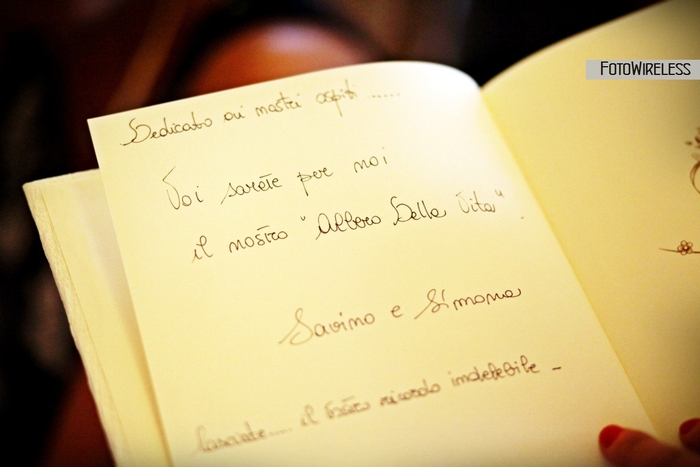 FOTOWIRELESS
Dedicato ai nostri ospiti ......
Voi sarete per noi
il nostro "Albero Della Vita".
Savino e Simona
Lasciate.... il Vostro ricordo indelebile -